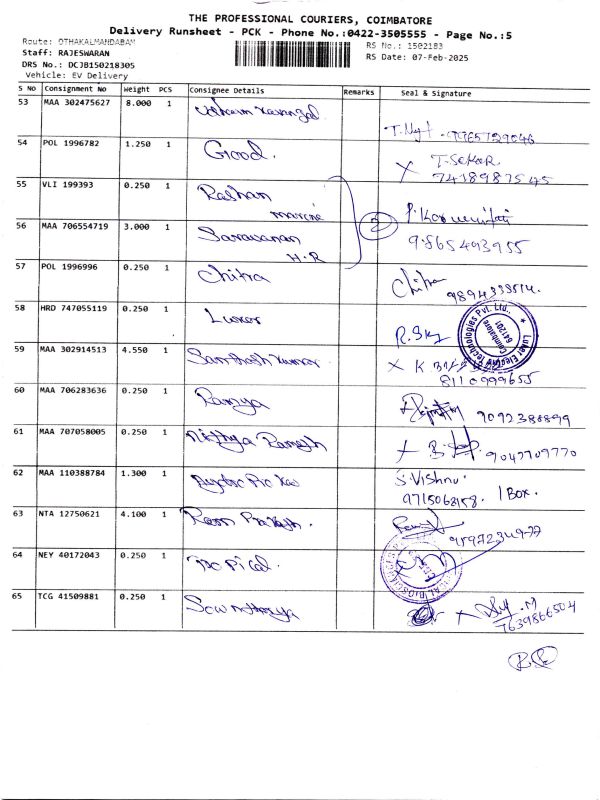 THE PROFESSIONAL COURIERS, COIMBATORE
Delivery Runsheet - PCK - Phone No.:0422-3505555 - Page No.:5
Route: OTHAKALMANDABAM
RS No.: 1502183
Staff: RAJESWARAN
RS Date: 07-Feb-2025
DRS No.: DCJB150218305
Vehicle: EV Delivery
S No Consignment No Weight PCS Consignee Details Remarks Seal & Signature
53 MAA 302475627 8.000 1
54 POL 1996782 1.250 1 Good. X T. SEKAR
55 VLI 199393 0.250 1 Roshan marine
56 MAA 706554719 3.000 1 Saravanan H.R 2 9865493955
57 POL 1996996 0.250 1 Chitra Chitra
58 HRD 747055119 0.250 1 Luker
Luker Electric Technologies Pvt. Ltd., Coimbatore 641201
59 MAA 302914513 4.550 1 Santhosh Kumar X K
8110999655
60 MAA 706283636 0.250 1 Ramya 9092380899
61 MAA 707058005 0.250 1 Nithya Ramesh 9047709770
62 MAA 110388784 1.300 1 S. Vishnu.
9715068158. 1 Box.
63 NTA 12750621 4.100 1 Ram Prakash.
64 NEY 40172043 0.250 1 Tropical
65 TCG 41509881 0.250 1 Sownthariya X
7639866504